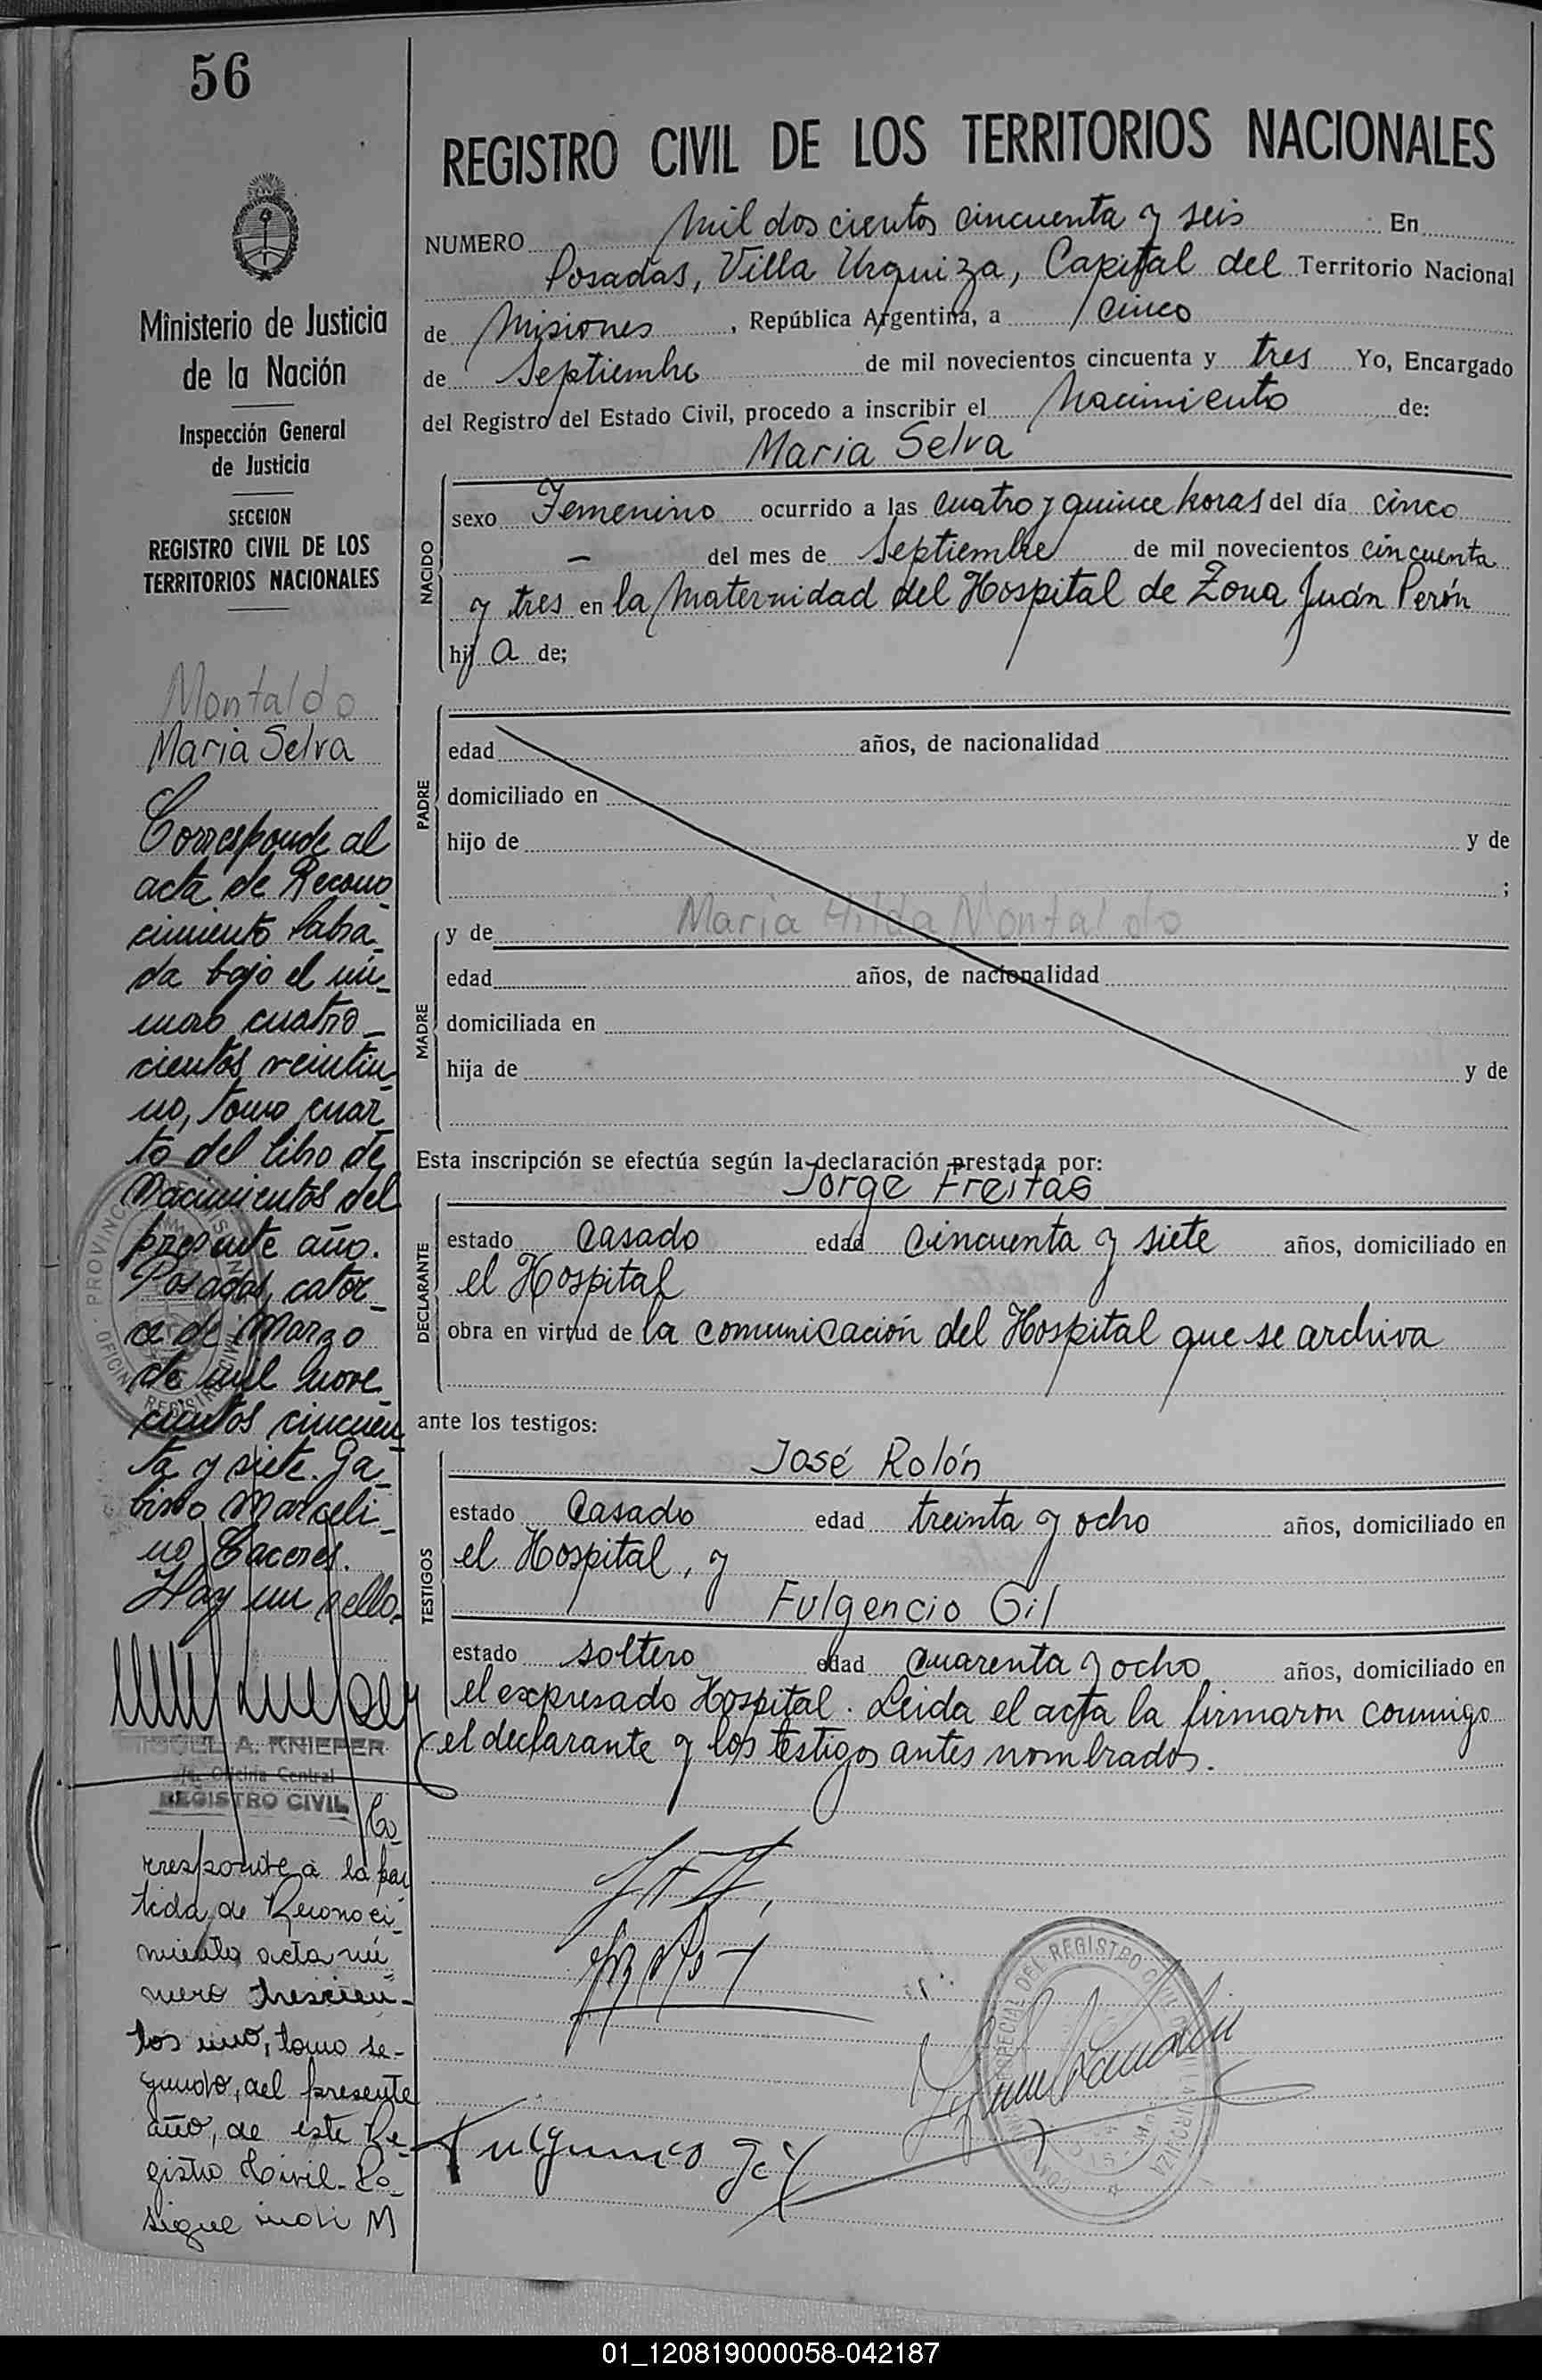 56
Ministerio de Justicia
de la Nación
Inspección General
de Justicia
SECCION
REGISTRO CIVIL DE LOS
TERRITORIOS NACIONALES
Montaldo
Maria Selva
Corresponde al
acta de Recono
cimiento labra-
da bajo el nú-
mero cuatro-
cientos veintiu-
no, tomo cuar
to del libro de
Nacimientos del
presente año.
Posadas, cator-
ce de Marzo
de mil nove
cientos cincuen
ta y siete. Ga-
bino Marceli-
no Caceres.
Hay un sello.
MIGUEL A. KNIEPER
Oficina Central
REGISTRO CIVIL
Co-
rresponde a la par
tida de Reconoci-
miento acta nú-
mero trescien-
tos uno, tomo se-
gundo, del presente
año, de este Re-
gistro Civil. Po-
sigue
REGISTRO CIVIL DE LOS TERRITORIOS NACIONALES
NUMERO Mil doscientos cincuenta y seis En
Posadas, Villa Urquiza, Capital del Territorio Nacional
de Misiones, República Argentina, a cinco
de Septiembre de mil novecientos cincuenta y tres Yo, Encargado
del Registro del Estado Civil, procedo a inscribir el Nacimiento de:
Maria Selva
NACIDO
sexo Femenino ocurrido a las cuatro y quince horas del día cinco
— del mes de Septiembre de mil novecientos cincuenta
y tres en la Maternidad del Hospital de Zona Juán Perón
hij a de;
PADRE
edad años, de nacionalidad
domiciliado en
hijo de y de
;
MADRE
y de Maria Hilda Montaldo
edad años, de nacionalidad
domiciliada en
hija de y de
Esta inscripción se efectúa según la declaración prestada por:
Jorge Freitas
DECLARANTE
estado casado edad cincuenta y siete años, domiciliado en
el Hospital
obra en virtud de la comunicación del Hospital que se archiva
ante los testigos:
José Rolón
TESTIGOS
estado casado edad treinta y ocho años, domiciliado en
el Hospital, y
Fulgencio Gil
estado soltero edad cuarenta y ocho años, domiciliado en
el expresado Hospital. Leida el acta la firmaron conmigo
el declarante y los testigos antes nombrados.
Fulgencio Gil
01_120819000058-042187